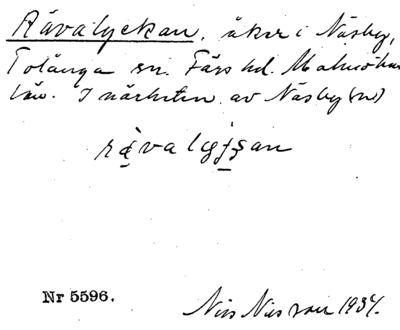 Rävalyckan, åker i Näsby,
Tolånga sn. Färs hd. Malmöhus
län. I närheten av Näsby (nr)
Nr 5596.
Nils Nilsson 1934.